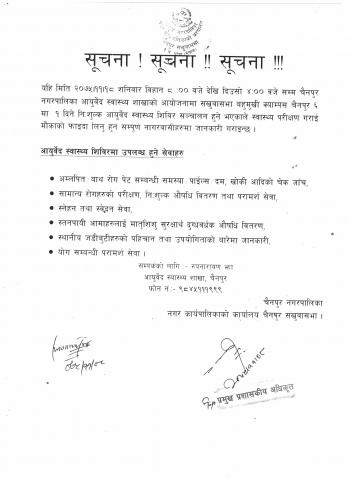 सूचना ! सूचना !! सूचना !!!
यहि मिति २०७५।११।१८ शनिबार विहान ८ :०० बजे देखि दिउसो ४:०० बजे सम्म चैनपुर
नगरपालिका आयुर्वेद स्वास्थ्य शाखाको आयोजनामा सखुवासभा बहुमुखी क्याम्पस चैनपुर ६
मा १ दिने नि:शुल्क आयुर्वेद स्वास्थ्य शिविर सञ्चालन हुने भएकाले स्वास्थ्य परीक्षण गराई
मौकाको फाइदा लिनु हुन सम्पुर्ण नागरवासीहरुमा जानकारी गराइन्छ ।
आयुर्वेद स्वास्थ्य शिविरमा उपलब्ध हुने सेवाहरु
• अम्लपित्त बाथ रोग पेट सम्बन्धी समस्या पाईल्स दम, खोकी आदिको चेक जाँच,
• सामान्य रोगहरुको परीक्षण, नि:शुल्क औषधि वितरण तथा परामर्श सेवा,
• स्नेहन तथा स्वेदन सेवा,
• स्तनपायी आमाहरुलाई मातृशिशु सुरक्षार्थ दुग्धवर्द्धक औषधि वितरण,
• स्थानीय जडीबुटीहरुको पहिचान तथा उपयोगिताको बारेमा जानकारी,
• योग सम्बन्धी परामर्श सेवा ।
सम्पर्कको लागि :- रुपनारायण झा
आयुर्वेद स्वास्थ्य शाखा, चैनपुर
फोन नं : ९८४५१११९९९
चैनपुर नगरपालिका
नगर कार्यपालिकाको कार्यालय चैनपुर सखुवासभा ।
प्रमुख प्रशासकीय अधिकृत